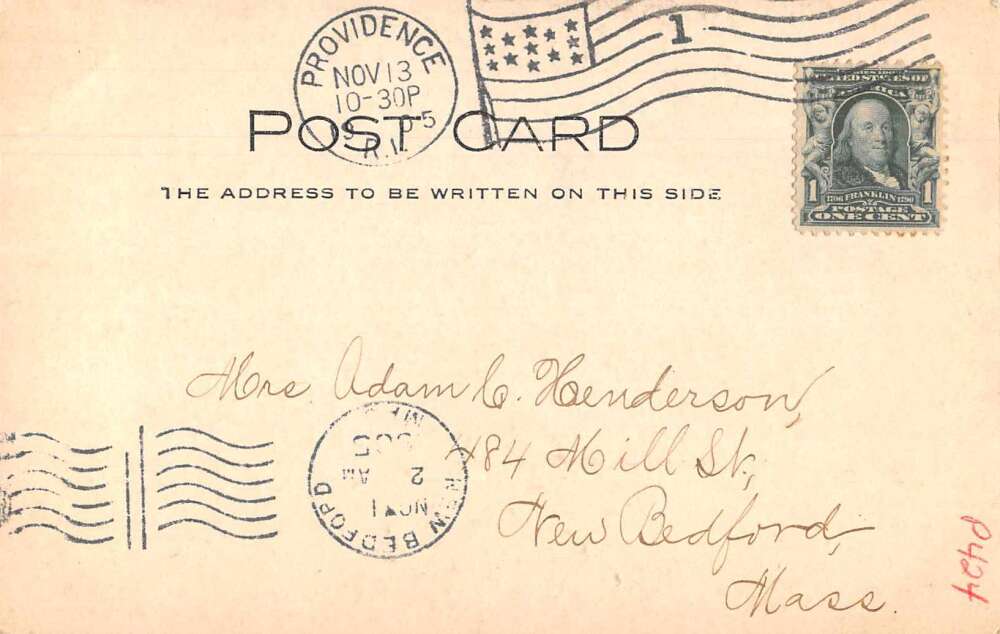 PROVIDENCE
NOV 13
10-30P
R.I.
1
POST CARD
THE ADDRESS TO BE WRITTEN ON THIS SIDE
UNITED STATES OF
1 1706 FRANKLIN 1790 1
POSTAGE
ONE CENT
Mrs. Adam C. Henderson,
184 Mill St.,
New Bedford,
Mass.
NEW BEDFORD
NOV 1
2 AM
P424